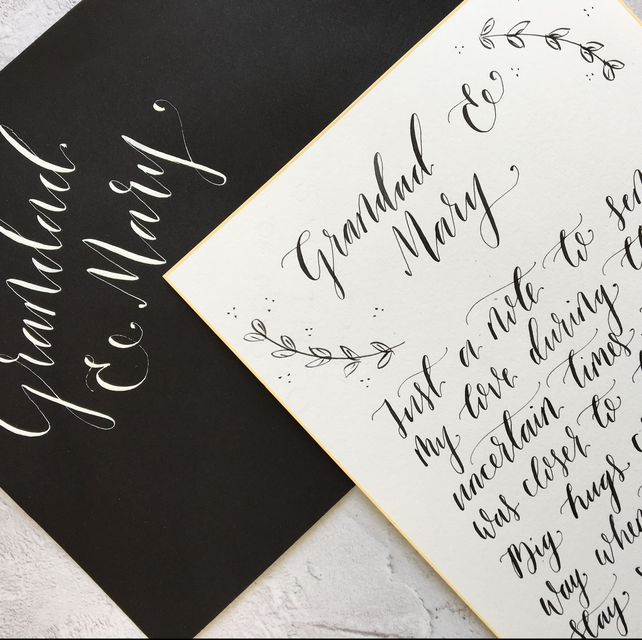 Grandad
& Mary
Grandad &
Mary
Just a note to
my love during
uncertain times
was closer to
Big hugs
way
Stay